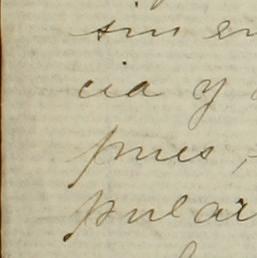 sin en
cia y
pues,
pular